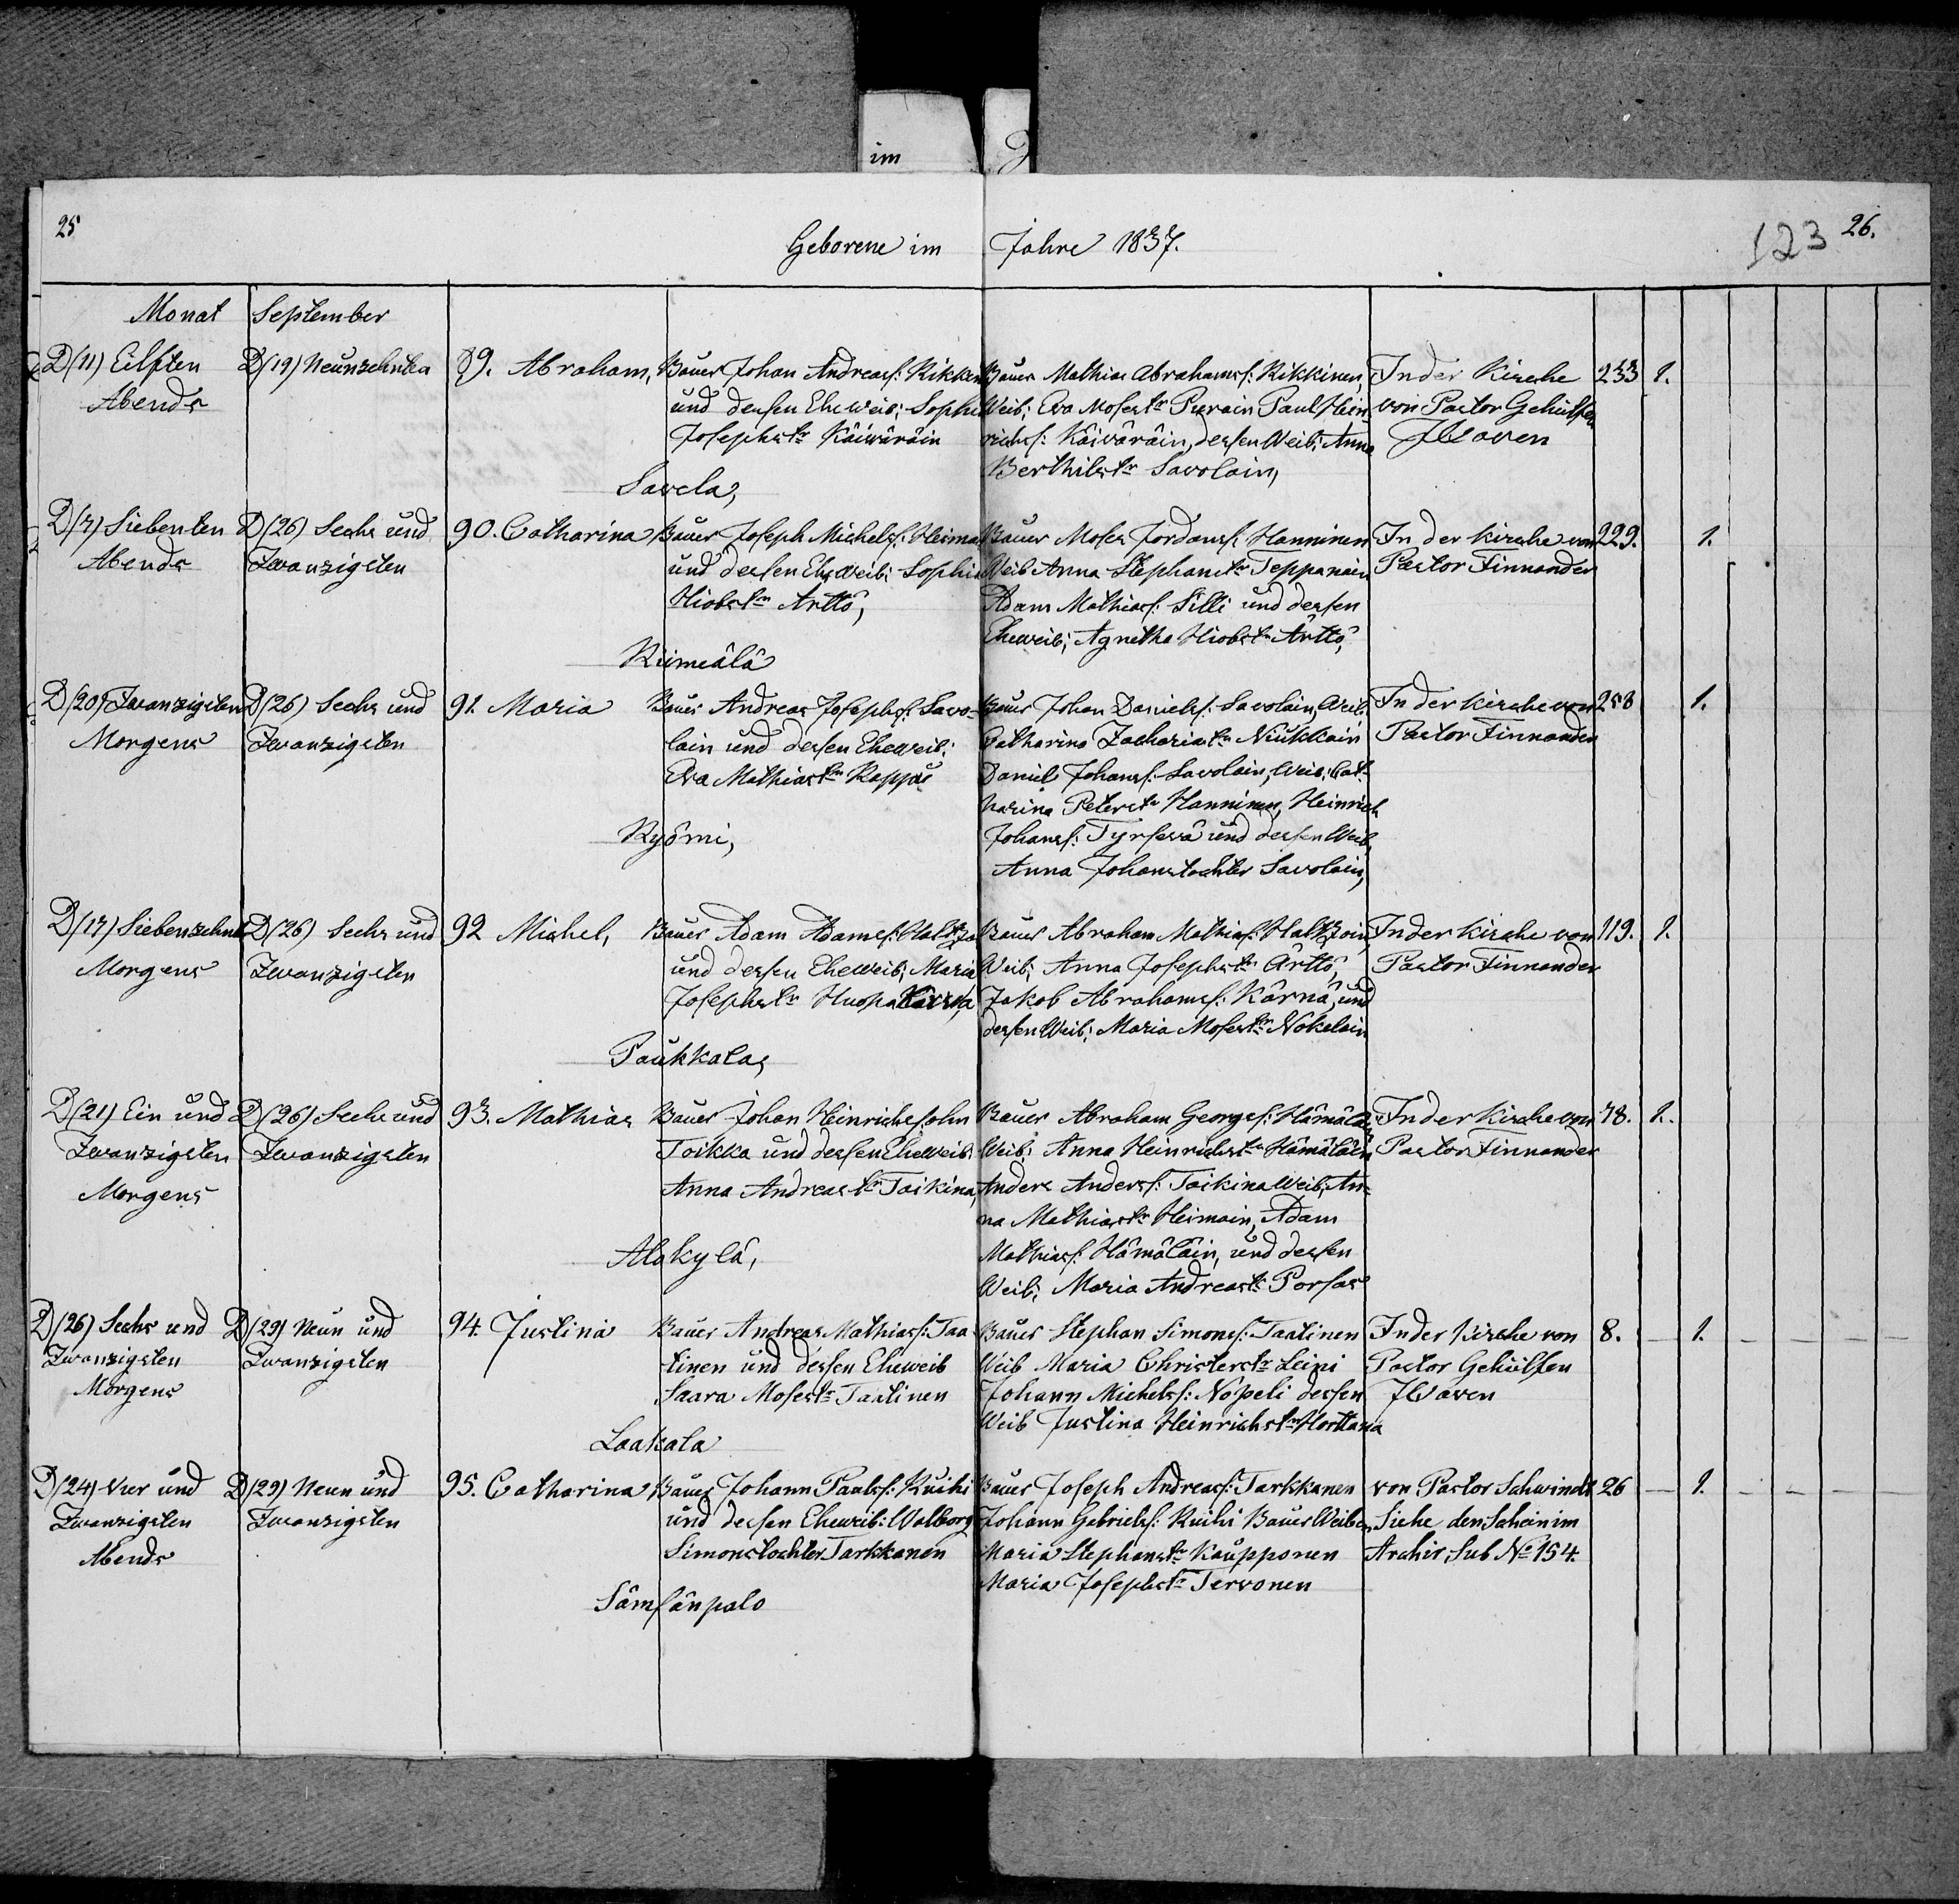 im
25
Geborene im Jahre 1837.
123 26.
Monat September
D(11) Eilften
Abends
D(19) Neunzehnten
89. Abraham,
Bauer Johan Andreasſ: Kikkin
und deſsen Eheweib: Sophi
Joſephstr Käiwäräin
Savela,
Bauer Mathias Abrahamsſ: Kikkinen,
Weib; Eva Moſestr Purain Paul Hein-
richsſ: Käiväräin, deſsen Weib; Anna
Berthilstr Savolain,
In der Kirche
von Pastor Gehülfen
233 1.
D(7) Siebenten
Abends
D(26) Sechs und
Zwanzigsten
90. Catharina
Bauer Joſeph Michelsſ: Heima
und deſsen Eheweib; Sophia
Hiobstr Arttö,
Riimeälä
Bauer Moſes Jordansſ: Hanninen
Weib Anna Stephanstr Teppanain
Adam Mathiasſ: Silli und deſsen
Eheweib; Agnetha Hiobstr Arttö,
In der Kirche von
Pastor Finnander
229. 1.
D(20) Zwanzigsten
Morgens
D(26) Sechs und
Zwanzigsten
91. Maria
Bauer Andreas Joſephsſ: Savo-
lain und deſsen Eheweib;
Eva Mathiastr Kappi
Kyörni,
Bauer Johan Danielsſ: Savolain, Weib
Catharina Zachariastr Niukkain
Daniel Johansſ: Savolain, Weib; Cat-
harina Peterstr Hanninen, Heinrich
Johansſ: Tyrſevä und deſsen Weib,
Anna Johanstochter Savolain,
In der Kirche von
Pastor Finnander
258 1.
D(17) Siebenzehn
Morgens
D(26) Sechs und
Zwanzigsten
92 Michel,
Bauer Adam Adamsſ:
und deſsen Eheweib; Maria
Joſephstr
Paukkala,
Bauer Abraham Mathiasſ:
Weib; Anna Joſephstr Arttö,
Jakob Abrahamsſ: Kärnä, und
deſsen Weib; Maria Moſestr Nokelain
In der Kirche von
Pastor Finnander
119. 1.
D(21) Ein und
Zwanzigsten
Morgens
D(26) Sechs und
Zwanzigsten
93. Mathias
Bauer Johan Heinrichsſohn
Toikka und deſsen Eheweib;
Anna Andreastr Taikina,
Alakylä,
Bauer Abraham Georgsſ: Hämäläin
Weib; Anna Heinrichstr Hämäläin
Anders Andersſ: Taikina Weib; An-
na Mathiastr Heimain, Adam
Mathiasſ: Hämäläin, und deſsen
Weib; Maria Andreastr Porſas
In der Kirche von
Pastor Finnander
78. 1.
D(26) Sechs und
Zwanzigsten
Morgens
D(29) Neun und
Zwanzigsten
94. Justina
Bauer Andreas Mathiasſ: Taa
tinen und deſsen Eheweib
Saara Moſestr Taatinen
Laakala
Bauer Stephan Simonsſ: Taatinen
Weib Maria Christerstr Leini
Johann Michelsſ: Nopeli deſsen
Weib Justina Heinrichstr Horttana
In der Kirche von
Pastor Gehülfen
8. – 1. – – – –
D(24) Vier und
Zwanzigsten
Abends
D(29) Neun und
Zwanzigsten
95. Catharina
Bauer Johann Paulsſ: Kuihi
und deſsen Eheweib: Walborg
Simonstochter Tarkkanen
Sämſänpalo
Bauer Joſeph Andreasſ: Tarkkanen
Johann Gabrielsſ: Kuihi Bauer Weiber,
Maria Stephanstr Kaupponen
Maria Joſephstr Tervonen
von Pastor Schwindt
Siehe den Schein im
Archiv, Sub No 154.
26 – 1. – – – –